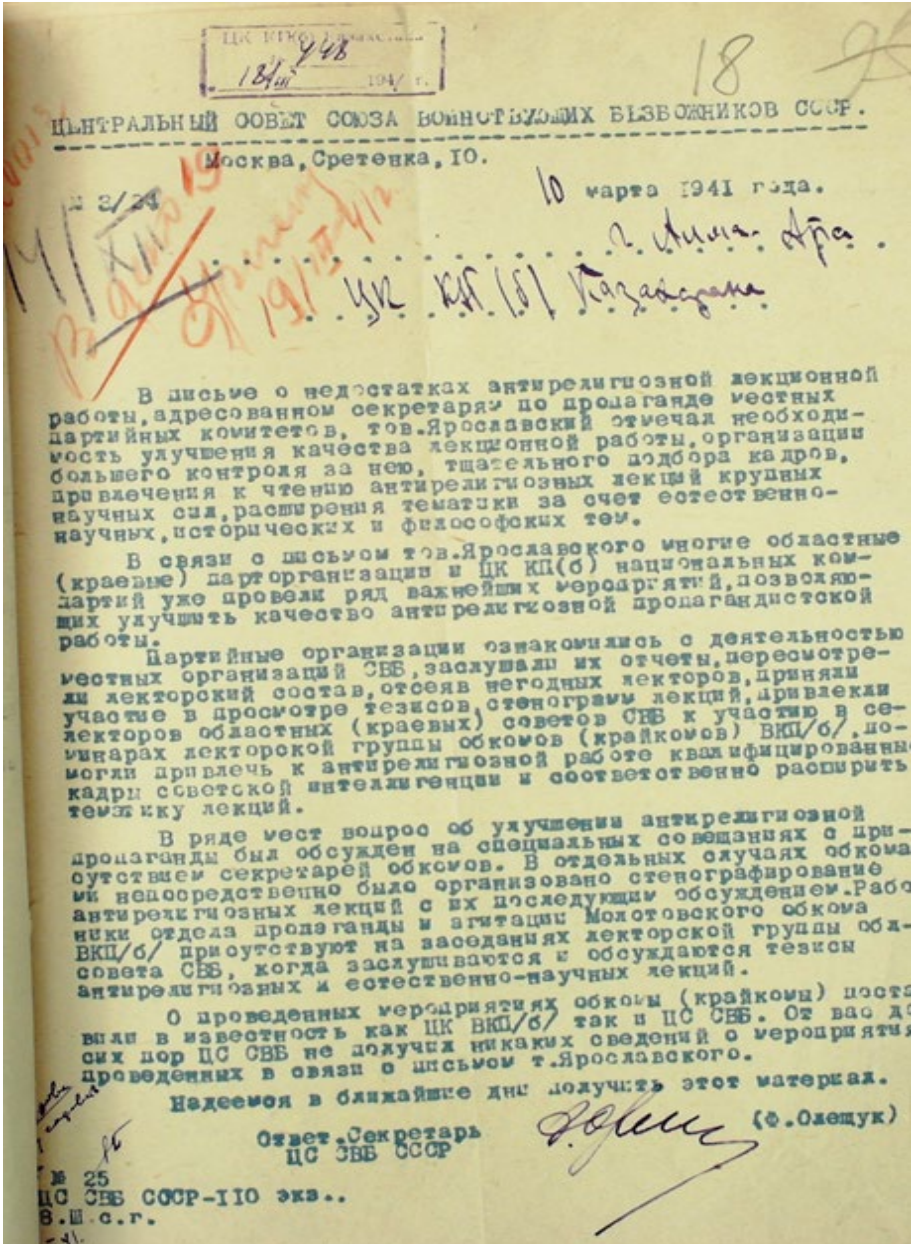 ЦК КП(б) Казахстана
№ 448
18/III 1941 г.
18
ЦЕНТРАЛЬНЫЙ СОВЕТ СОЮЗА ВОИНСТВУЮЩИХ БЕЗБОЖНИКОВ СССР.
Москва,Сретенка,10.
№ 3/24
10 марта 1941 года.
г. Алма-Ата
ЦК КП/б/ Казахстана
В письме о недостатках антирелигиозной лекционной
работы,адресованном секретарям по пропаганде местных
партийных комитетов, тов.Ярославский отмечал необходи-
мость улучшения качества лекционной работы,организации
большего контроля за нею, тщательного подбора кадров,
привлечения к чтению антирелигиозных лекций крупных
научных сил,расширения тематики за счет естественно-
научных,исторических и философских тем.
В связи с письмом тов.Ярославского многие областные
(краевые) парторганизации и ЦК КП(б) национальных ком-
партий уже провели ряд важнейших мероприятий,позволяю-
щих улучшить качество антирелигиозной пропагандистской
работы.
Партийные организации ознакомились с деятельностью
местных организаций СВБ,заслушали их отчеты,пересмотре-
ли лекторский состав,отсеяв негодных лекторов,приняли
участие в просмотре тезисов,стенограмм лекций,привлекли
лекторов областных (краевых) советов СВБ к участию в се-
минарах лекторской группы обкомов (крайкомов) ВКП/б/,по-
могли привлечь к антирелигиозной работе квалифицированные
кадры советской интеллигенции и соответственно расширить
тематику лекций.
В ряде мест вопрос об улучшении антирелигиозной
пропаганды был обсужден на специальных совещаниях с при-
сутствием секретарей обкомов. В отдельных случаях обкома
ми непосредственно было организовано стенографирование
антирелигиозных лекций с их последующим обсуждением.Рабо
ники отдела пропаганды и агитации Молотовского обкома
ВКП/б/ присутствуют на заседаниях лекторской группы обл-
совета СВБ, когда заслушиваются и обсуждаются тезисы
антирелигиозных и естественно-научных лекций.
О проведенных мероприятиях обкомы (крайкомы) поста
вили в известность как ЦК ВКП/б/ так и ЦС СВБ. От вас до
сих пор ЦС СВБ не получил никаких сведений о мероприятия
проведенных в связи с письмом т.Ярославского.
Надеемся в ближайшие дни получить этот материал.
Ответ.Секретарь
ЦС СВБ СССР
(Ф.Олещук)
№ 25
ЦС СВБ СССР-110 экз..
В.Ш.с.г.